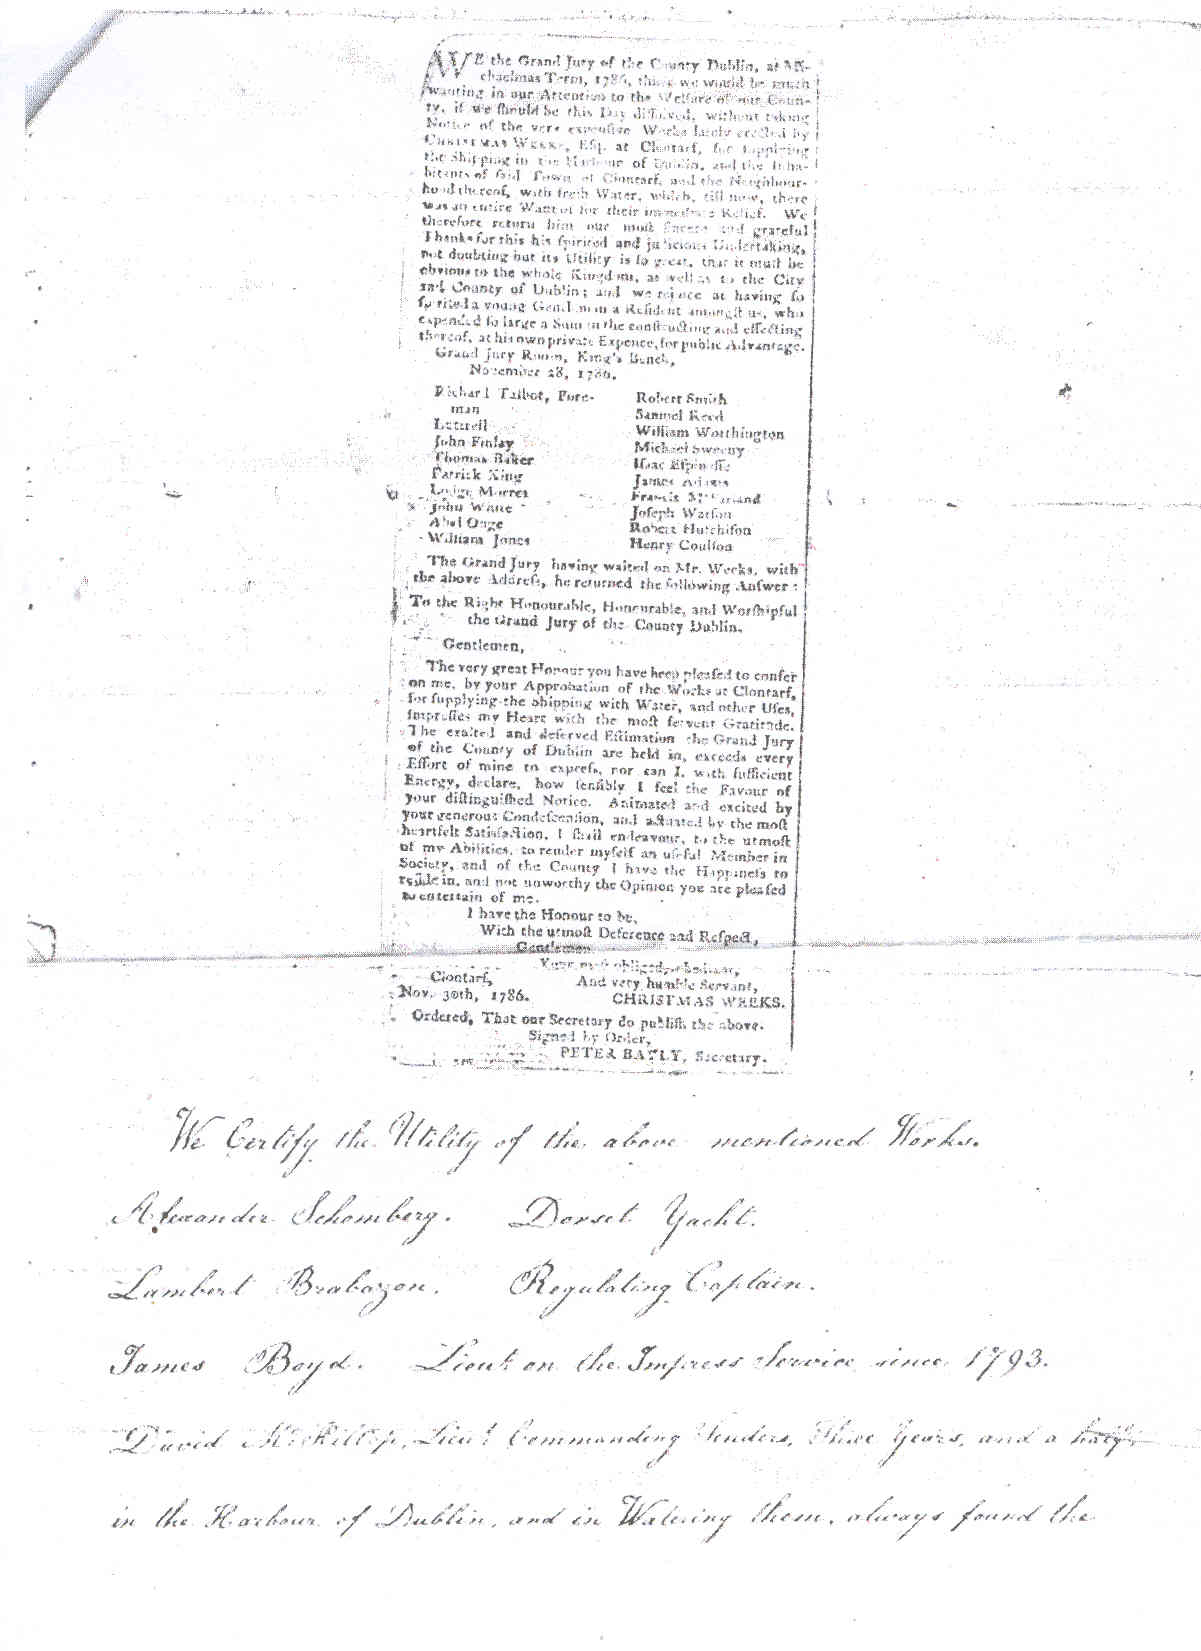 WE the Grand Jury of the County Dublin, at Mi-
chaelmas Term, 1786, think we would be much
wanting in our Attention to the Welfare of our Coun-
ty, if we ſhould be this Day diſſolved, without taking
Notice of the very expenſive Works lately erected by
CHRISTMAS WEEKS, Eſq. at Clontarf, for ſupplying
the Shipping in the Harbour of Dublin, and the Inha-
bitants of ſaid Town of Clontarf, and the Neighbour-
hood thereof, with freſh Water, which, till now, there
was an entire Want of for their immediate Relief. We
therefore return him our moſt ſincere and grateful
Thanks for this his ſpirited and judicious Undertaking,
not doubting but its Utility is ſo great, that it muſt be
obvious to the whole Kingdom, as well as to the City
and County of Dublin; and we rejoice at having ſo
ſpirited a young Gentleman a Reſident amongſt us, who
expended ſo large a Sum in the conſtructing and effecting
thereof, at his own private Expence, for public Advantage.
Grand Jury Room, King's Bench,
November 28, 1786.
Richard Talbot, Fore- Robert Smith
man Samuel Reed
Luttrell William Worthington
John Finlay Michael Sweeny
Thomas Baker Iſaac Eſpinaſſe
Patrick King James Adams
Lodge Morres Francis
John White Joſeph Watſon
Abel Onge Robert Hutchiſon
William Jones Henry Coulſon
The Grand Jury having waited on Mr. Weeks, with
the above Addreſs, he returned the following Anſwer:
To the Right Honourable, Honourable, and Worſhipful
the Grand Jury of the County Dublin.
Gentlemen,
The very great Honour you have been pleaſed to confer
on me, by your Approbation of the Works at Clontarf,
for ſupplying the Shipping with Water, and other Uſes,
impreſſes my Heart with the moſt fervent Gratitude.
The exalted and deſerved Eſtimation the Grand Jury
of the County of Dublin are held in, exceeds every
Effort of mine to expreſs, nor can I, with ſufficient
Energy, declare, how ſenſibly I feel the Favour of
your diſtinguiſhed Notice. Animated and excited by
your generous Condeſcenſion, and actuated by the moſt
heartfelt Satisfaction, I ſhall endeavour, to the utmoſt
of my Abilities, to render myſelf an uſeful Member in
Society, and of the County I have the Happineſs to
reſide in, and not unworthy the Opinion you are pleaſed
to entertain of me.
I have the Honour to be,
With the utmoſt Deference and Reſpect,
Gentlemen
Your moſt obliged, obedient,
Clontarf, And very humble Servant,
Nov. 30th, 1786. CHRISTMAS WEEKS.
Ordered, That our Secretary do publiſh the above.
Signed by Order,
PETER BAYLY, Secretary.
We Certify the Utility of the above mentioned Works.
Alexander Schomberg. Dorset Yacht.
Lambert Brabazon. Regulating Captain.
James Boyd. Lieut on the Impress Service since 1793.
David McKillop, Lieut Commanding Tenders, Three Years, and a half
in the Harbour of Dublin, and in Watering them, always found the